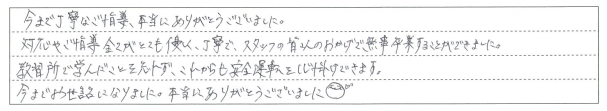 今まで丁寧なご指導、本当にありがとうございました。
対応やご指導全てがとても優しく、丁寧で、スタッフの皆さんのおかげで無事卒業することができました。
教習所で学んだことを忘れず、これからも安全運転を心掛けてきます。
今までお世話になりました。本当にありがとうございました